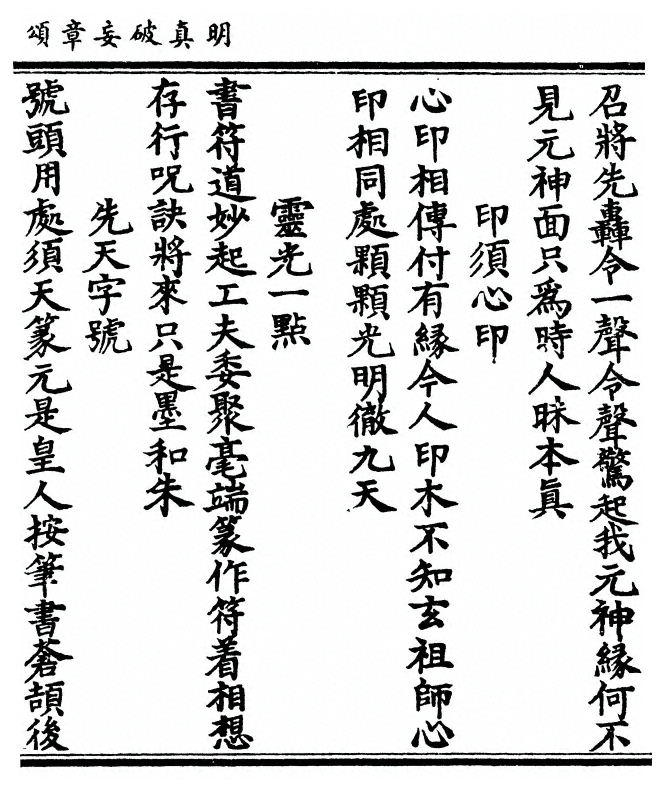 明真破妄章頌
召將先轟令一聲令聲驚起我元神緣何不
見元神面只為時人昧本眞
印須心印
心印相傳付有緣今人印木不知玄祖師心
印相同處顆顆光明徹九天
靈光一點
書符道妙起工夫委聚毫端篆作符着相想
存行呪訣將來只是墨和朱
先天字號
號頭用處須天篆元是皇人按筆書蒼頡後